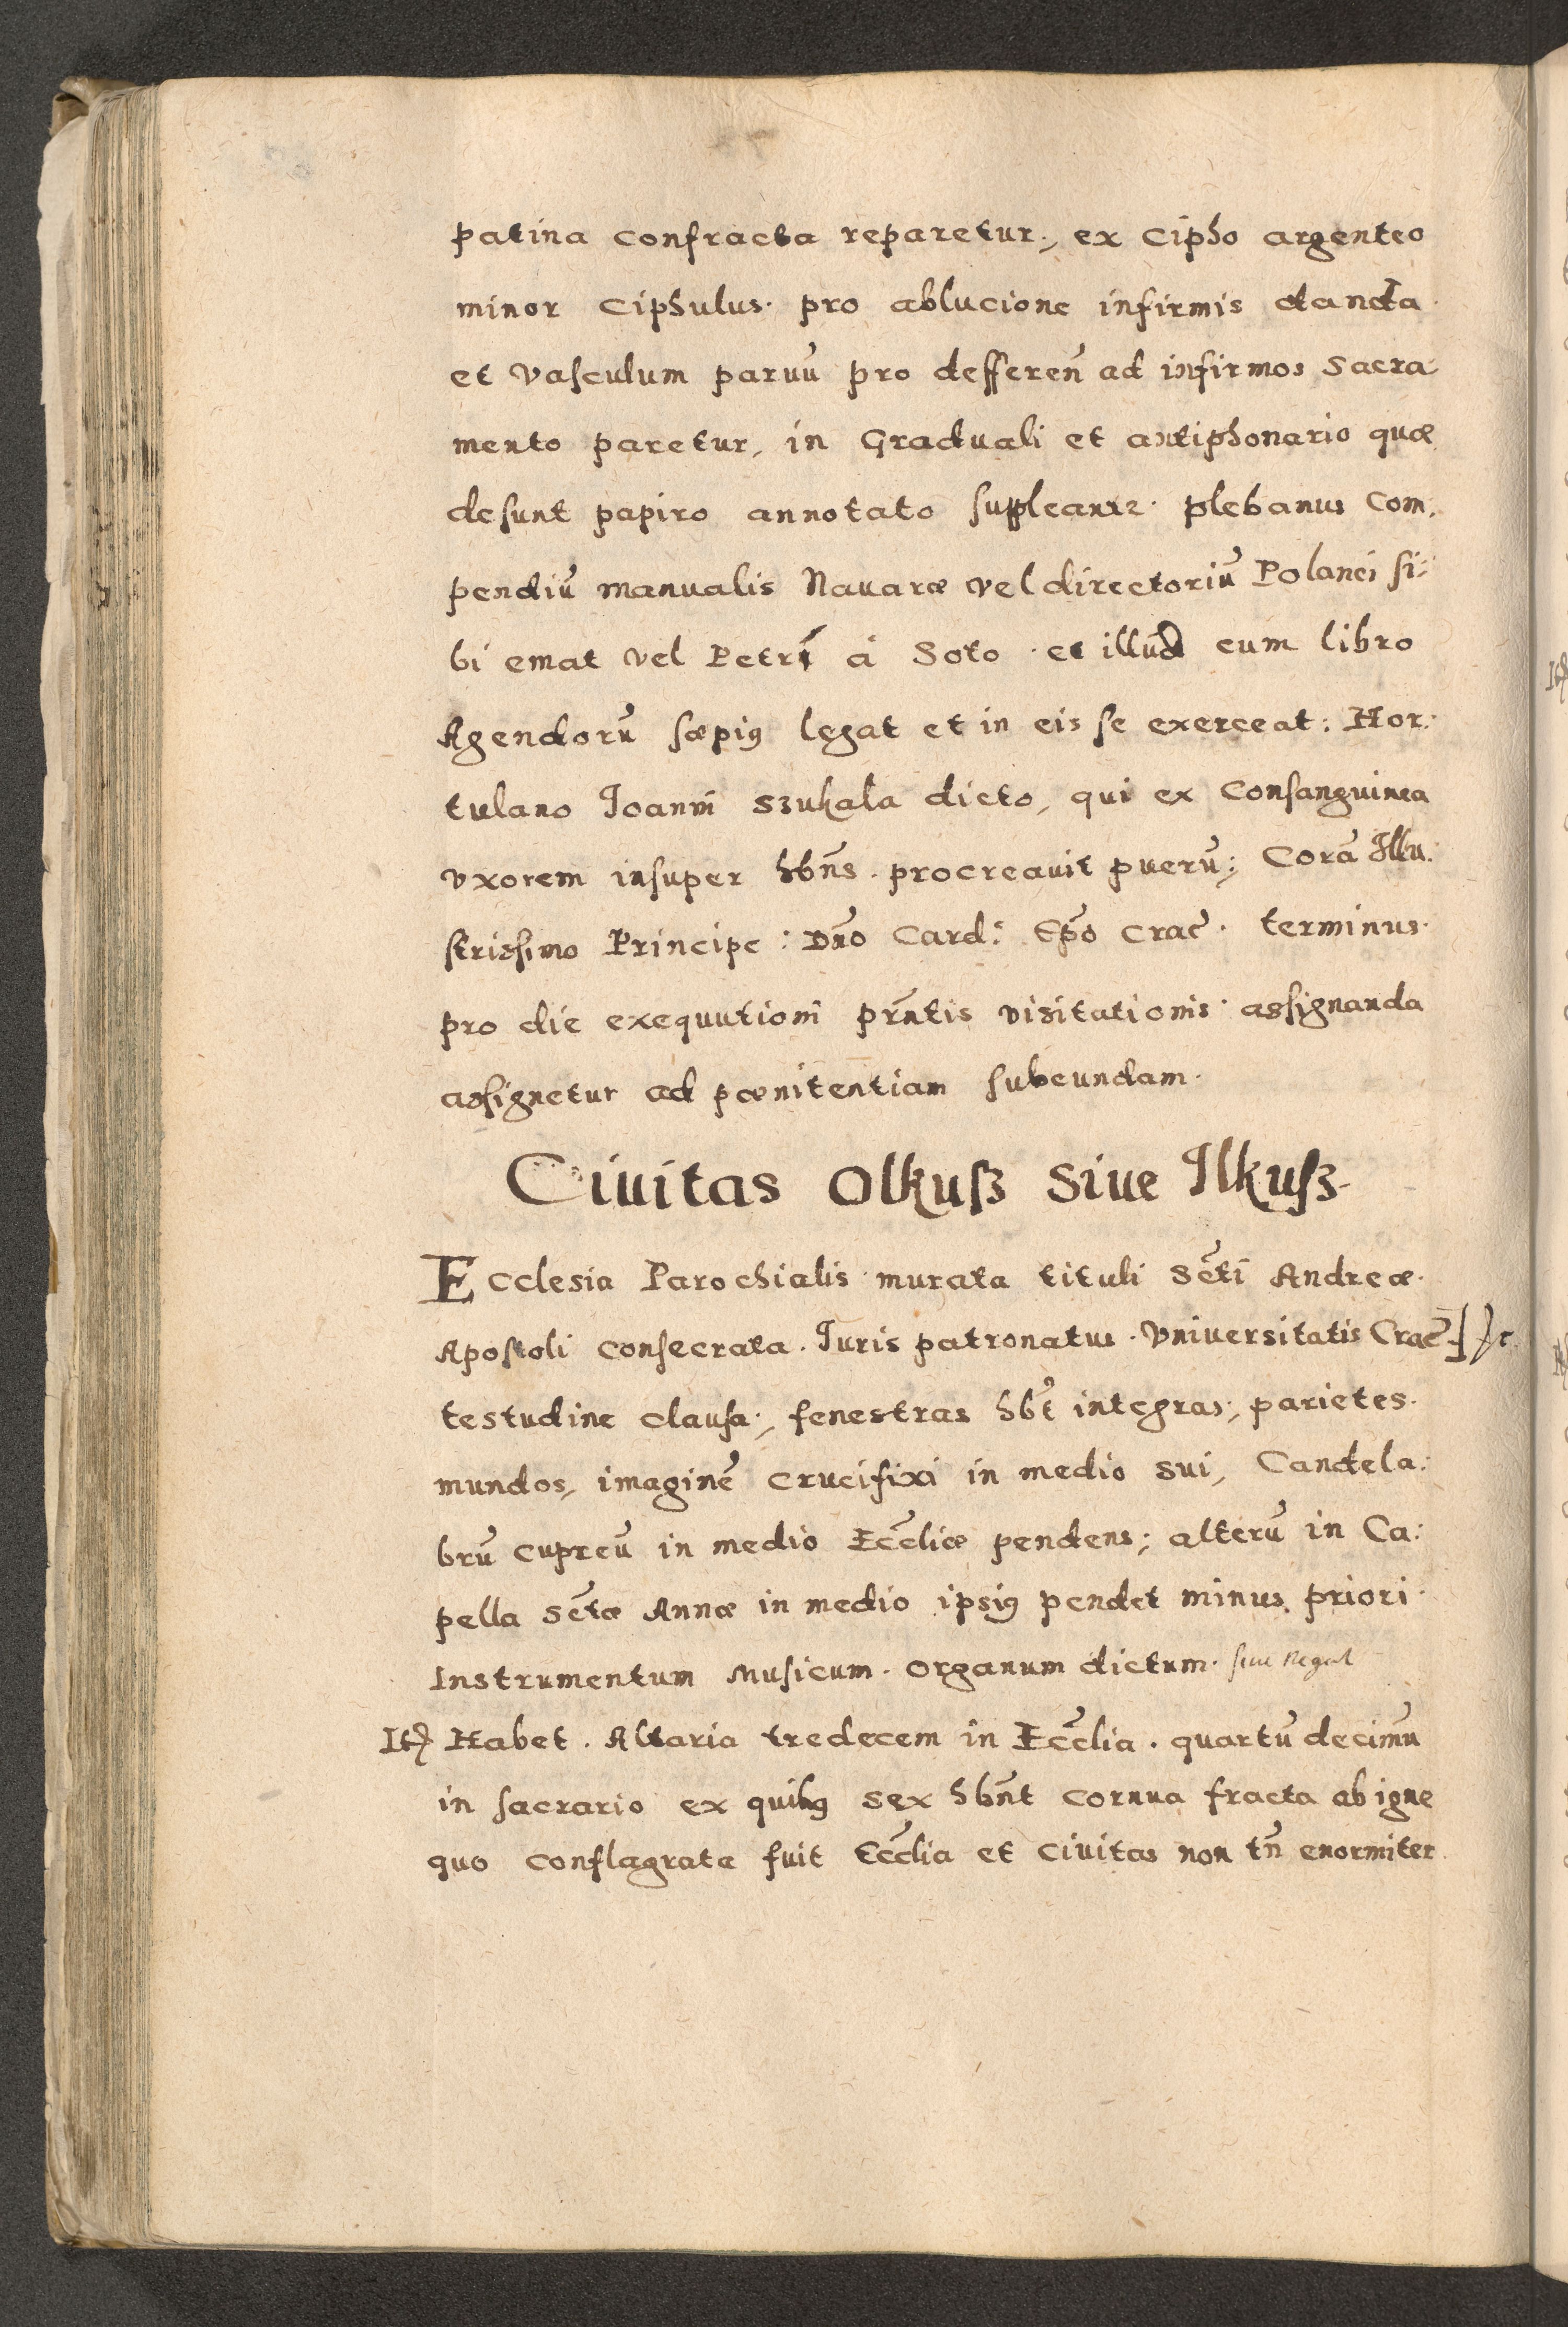 patina confracta reparetur., ex Cipho argenteo
minor Ciphulus. pro ablucione infirmis danda
et Vasculum paruū pro defferen̄ ad infirmos Sacra
mento paretur, in Graduali et antiphonario quæ
desunt papiro annotato suppleantr. plebanus Com.
pendiū manualis Nauaræ vel directoriū Polanci si:
bi emat vel Petri à Soto et illud cum libro
Agendorū sæpiꝰ legat et in eis se exerceat: Hor:
tulano Joanni Szukala dicto, qui ex Consanguinea
vxorem insuper hbn̄s. procreauit puerū; Corā Illu.
strissimo Principe: Dn̄o Card: Ep̄o Crac̄. terminus.
pro die exequutioni pr̄ntis visitationis assignanda
assignetur ad pœnitentiam subeundam.
Ciuitas Olkusz Siue Ilkusz.
Ecclesia Parochialis murata tituli Sc̄ti Andreæ.
Apostoli consecrata. Juris patronatus. Vniuersitatis Crac̄.
testudine clausa., fenestras hb̄t integras., parietes.
mundos, imaginē crucifixi in medio sui, Candela:
brū cupreū in medio Ecc̄liæ pendens; alterū in Ca:
pella Sc̄tæ Annæ in medio ipsiꝰ pendet minus priori
Instrumentum Musicum. Organum dictum. siue Regal
It. Habet. Altaria tredecem in Ecc̄lia. quartū decimū
in sacrario ex quibꝰ sex hbn̄t cornua fracta ab igne
quo conflagrata fuit Ecc̄lia et Ciuitas non tn̄ enormiter